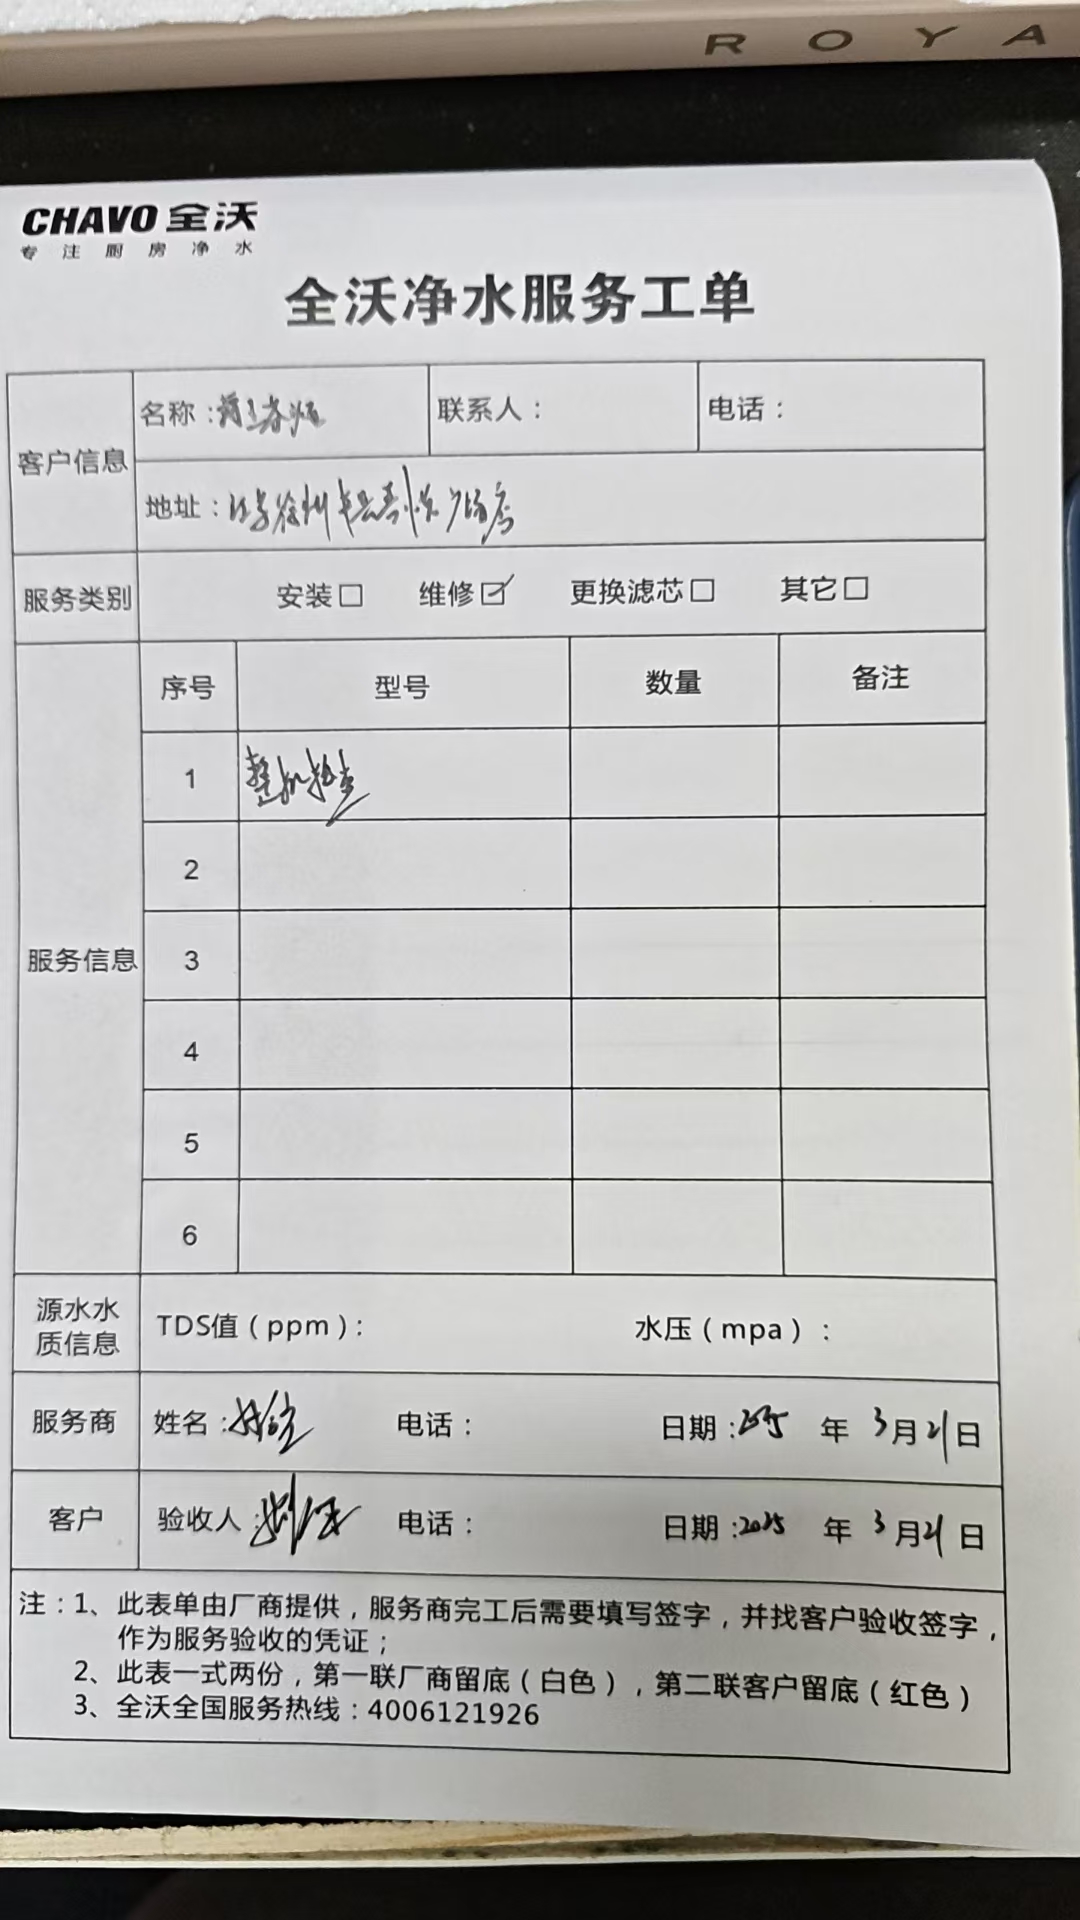 ROYA
CHAVO 全沃
专注厨房净水
全沃净水服务工单
客户信息
名称：
联系人：
电话：
地址：江苏徐州 广场店
服务类别
安装☐ 维修☑ 更换滤芯☐ 其它☐
服务信息
序号 型号 数量 备注
1 整机检查
2
3
4
5
6
源水水质信息
TDS值（ppm）： 水压（mpa）：
服务商 姓名： 电话： 日期：2025 年 3月21日
客户 验收人： 电话： 日期：2025 年 3月21日
注：1、此表单由厂商提供，服务商完工后需要填写签字，并找客户验收签字，
作为服务验收的凭证；
2、此表一式两份，第一联厂商留底（白色），第二联客户留底（红色）
3、全沃全国服务热线：4006121926